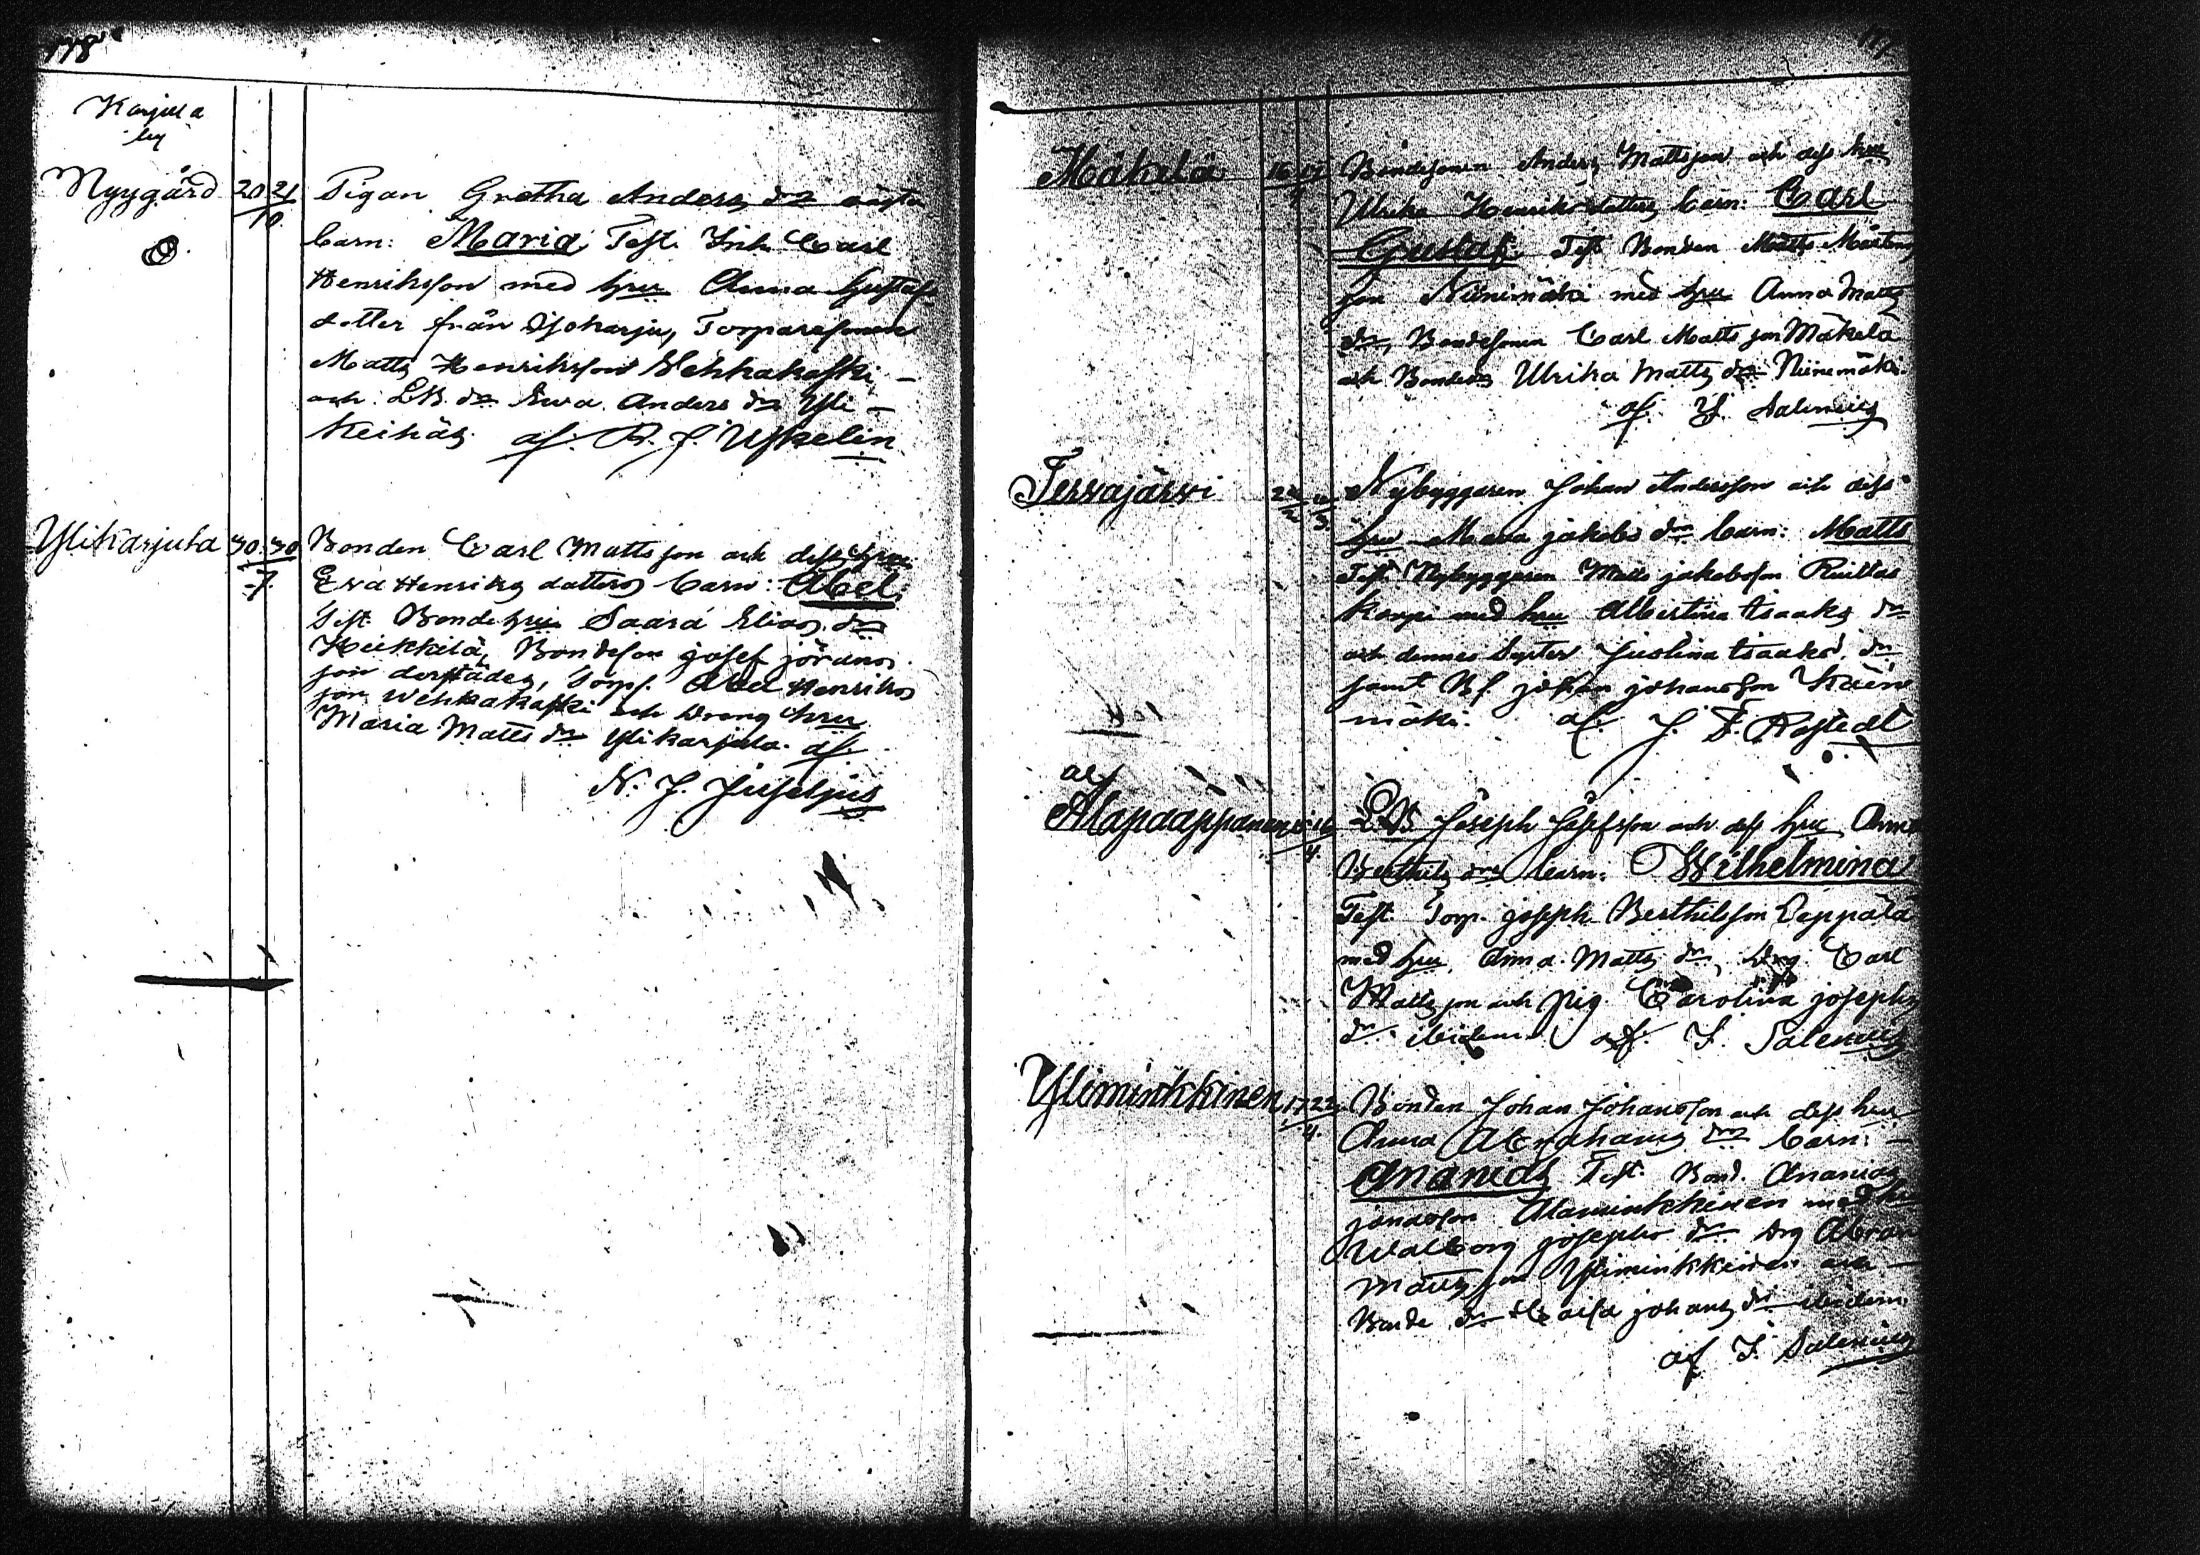 178
Karjula
by
Nygård 20 21 Pigan Gretha Anders dr oägta
10.
barn: Maria Test. Inh. Carl
Henriksson med hru Anna Gustafs
dotter från Torparesonen
Matts Henriksson Wehkakoski
och LB. dr Ewa Anders dr Yli-
keihäs. af. Uskelin
Ylikarjula 30. 30 Bonden Carl Mattsson och dess hru
7.
Eva Henriks dotters barn: Abel.
Test. Bondehru Saara Elias dr
Heikkilä, Bondeson Josef Jörans
son derstädes, Torp. Abel Henriks
son Wehkakoski och Dräng hru
Maria Matts dr Ylikarjula. af.
N. J. Juselius
Mäkelä 16 Bondesonen Anders Mattsson och dess hru
Ulrika Henriksdotters barn: Carl
Gustaf. Test. Bonden Matts Mårtens
son Niinimäki med hru Anna Matts
dr, Bondesonen Carl Matts son Mäkelä
och Bonde dr Ulrika Matts dr Niinimäki.
af. J. Salenius
Tervajärvi Nybyggaren Johan Andersson och dess
hru Maria Jakobs dr barn: Matts
Test. Nybyggaren Matts Jakobsson
korpi med hru Albertina Isaaks dr
och dennes Syster Justina Isaaks dr
samt Bf. Johan Johansson
mäki. af. J. F. Rostedt
Alapaappanen 16 LB Joseph Josefsson och dess hru Anna
4.
Berthils drs barn: Wilhelmina
Test. Torp. Joseph Berthilsson Leppälä
med hru Anna Matts dr, Drg. Carl
Matts son och pig Carolina Josephs
dr ibidem. af. J. Salenius
Yliminkkinen 17 22 Bonden Johan Johansson och dess hru
4.
Anna Abrahams drs barn:
Ananias Test. Bond. Ananias
Jonasson Alaminkkinen med
Walborg Josephs dr. Drg Abram
Matts son Yliminkkinen och
Bonde dr Caisa Johans dr ibidem
af J. Salenius